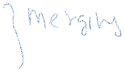 } merging